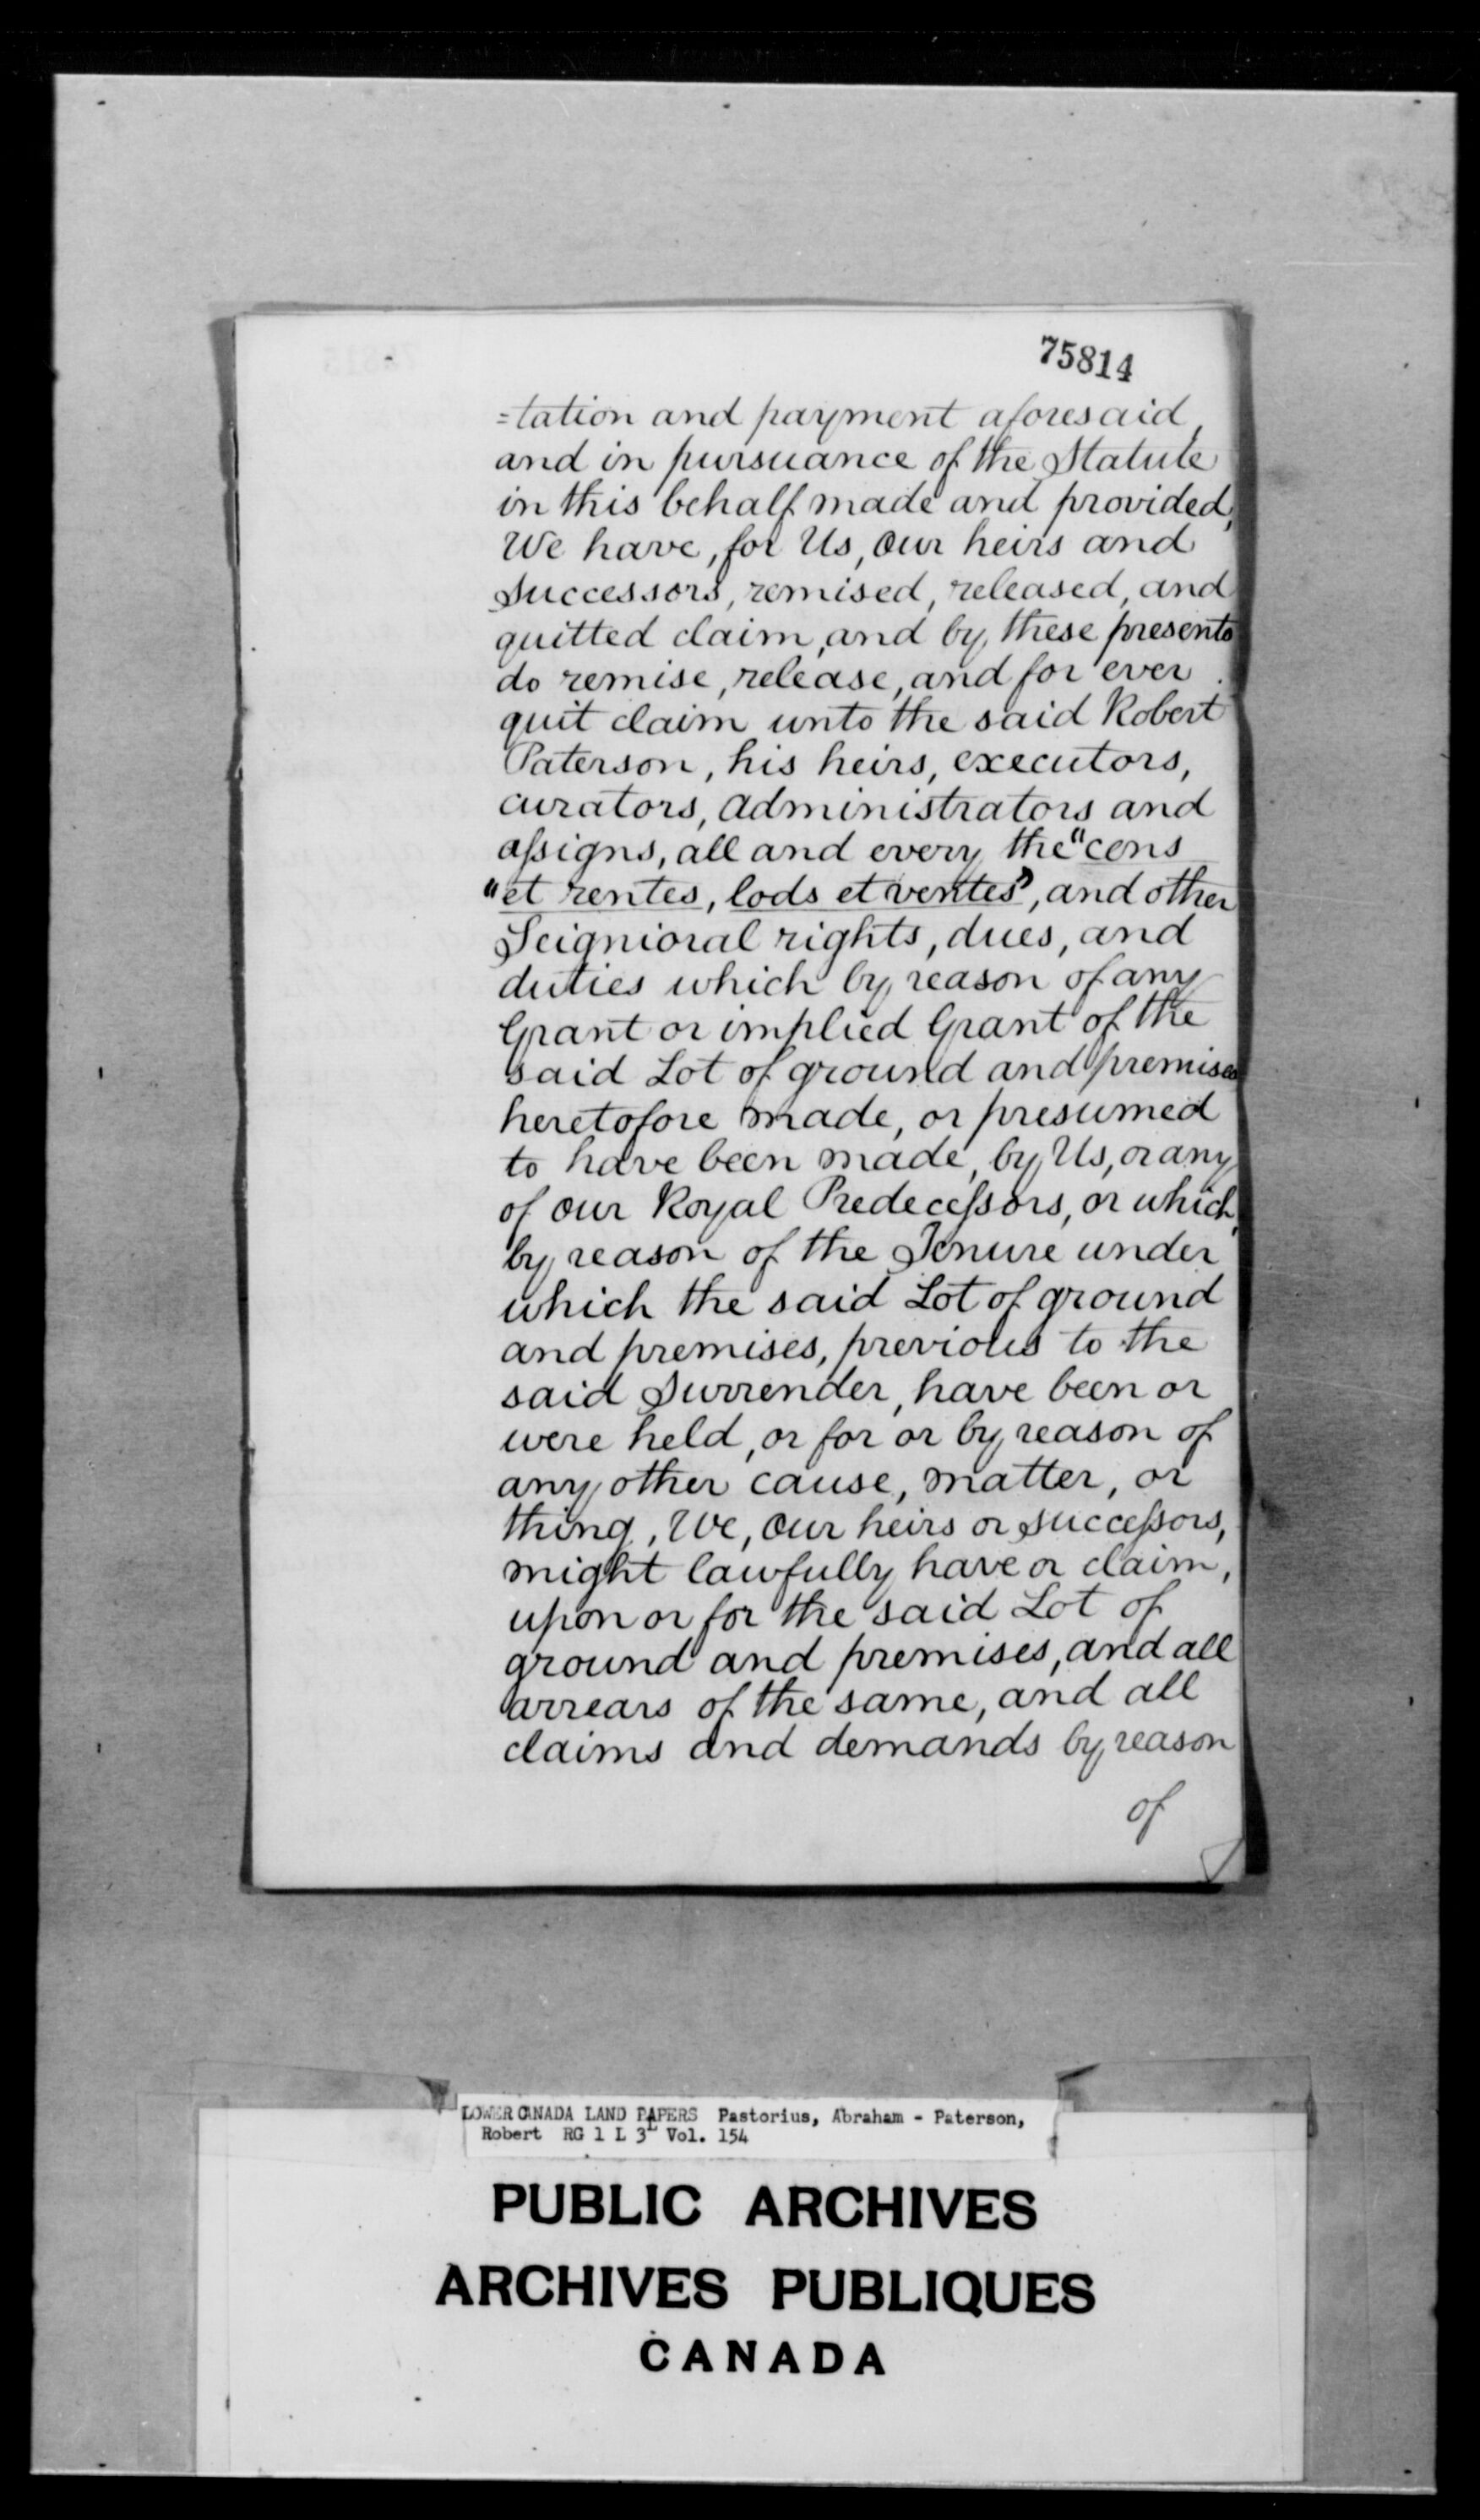 75814
=tation and payment aforesaid,
and in pursuance of the Statute
in this behalf made and provided,
We have, for Us, Our heirs and
Successors, remised, released, and
quitted claim, and by these presents
do remise, release, and for ever
quit claim unto the said Robert
Paterson, his heirs, executors,
curators, administrators and
assigns, all and every the "cens
"et rentes, lods et ventes", and other
Seignioral rights, dues, and
duties which by reason of any
Grant or implied Grant of the
said Lot of ground and premises
heretofore made, or presumed
to have been made, by Us, or any
of our Royal Predecessors, or which,
by reason of the Tenure under
which the said Lot of ground
and premises, previous to the
said Surrender, have been or
were held, or for or by reason of
any other cause, matter, or
thing, We, Our heirs or Successors,
might lawfully have or claim,
upon or for the said Lot of
ground and premises, and all
arrears of the same, and all
claims and demands by reason
of
LOWER CANADA LAND PAPERS Pastorius, Abraham - Paterson,
Robert RG 1 L 3L Vol. 154
PUBLIC ARCHIVES
ARCHIVES PUBLIQUES
CANADA